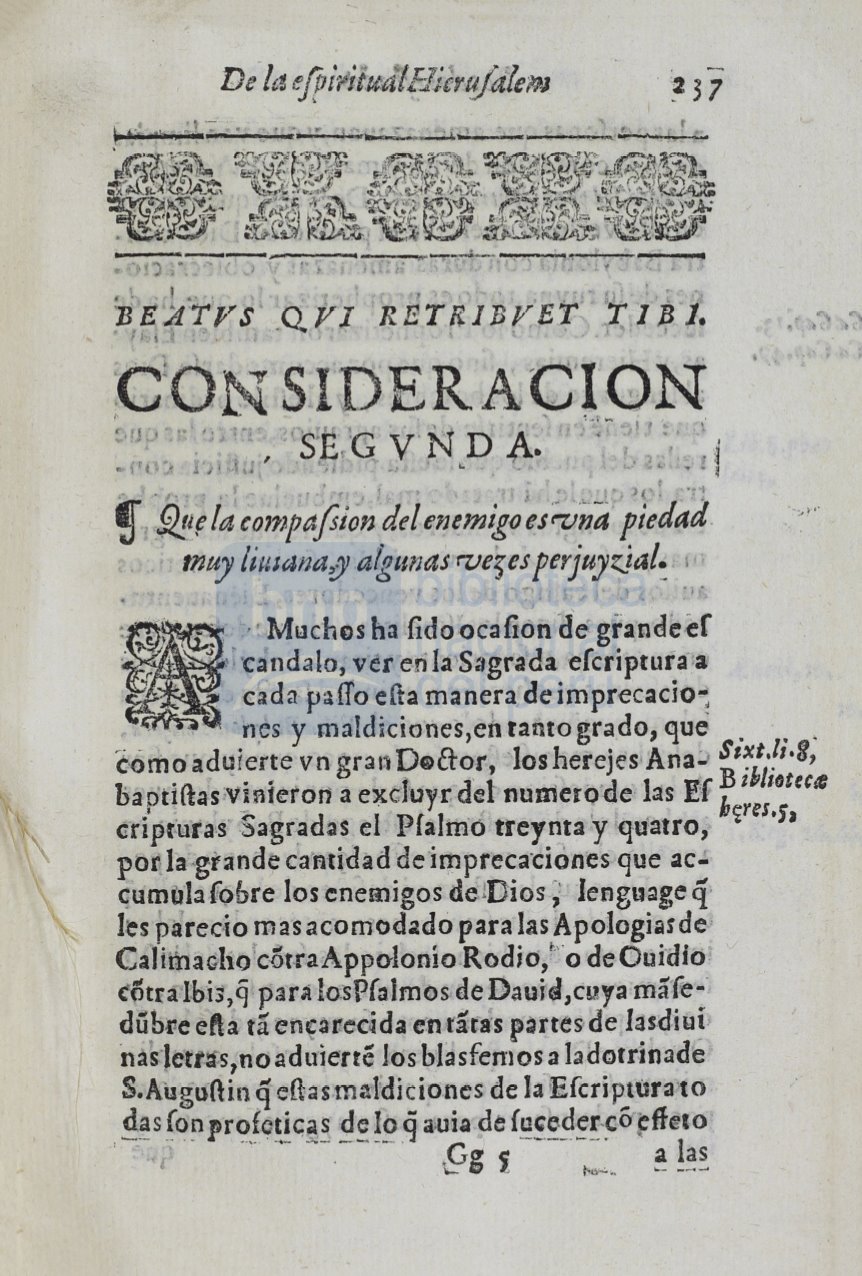 De la eſpiritual Hieruſalem 237
BEATVS QVI RETRIBVET TIBI.
CONSIDERACION
SEGVNDA.
¶ Que la compaſsion del enemigo es vna piedad
muy liuiana, y algunas vezes perjuyzial.
A Muchos ha ſido ocaſion de grande eſ
candalo, ver en la Sagrada eſcriptura a
cada paſſo eſta manera de imprecacio-
nes y maldiciones, en tanto grado, que
como aduierte vn gran Doctor, los herejes Ana-
baptiſtas vinieron a excluyr del numero de las Eſ
cripturas Sagradas el Pſalmo treynta y quatro,
por la grande cantidad de imprecaciones que ac-
cumula ſobre los enemigos de Dios, lenguage q̃
les parecio mas acomodado para las Apologias de
Calimacho cõtra Appolonio Rodio, o de Ouidio
cõtra Ibis, q̃ para los Pſalmos de Dauid, cuya mãſe-
dũbre eſta tã encarecida en tãtas partes de las diui
nas letras, no aduiertẽ los blasfemos a la dotrina de
S. Auguſtin q̃ eſtas maldiciones de la Eſcriptura to
das ſon profeticas de lo q̃ auia de ſuceder cõ effeto
Gg 5 a las
Sixt. li. 8,
Bibliotecæ
hęres. 5,